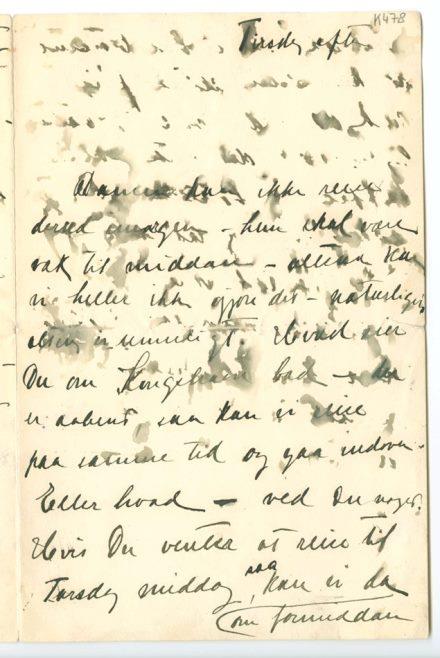 K478
Tirsdag efter
kan ikke reise
derud imorgen – hun skal være
vak til middag – altsaa kan
vi heller ikke gjøre det – naturligvis
Hvad sier
Du om Kongshavn bad – det
er aabent, saa kan vi reise
paa samme tid og gaa indover.
Eller hvad – ved Du noget.
Hvis Du venter at reise til
Torsdag middag, saa kan vi da
om formiddan